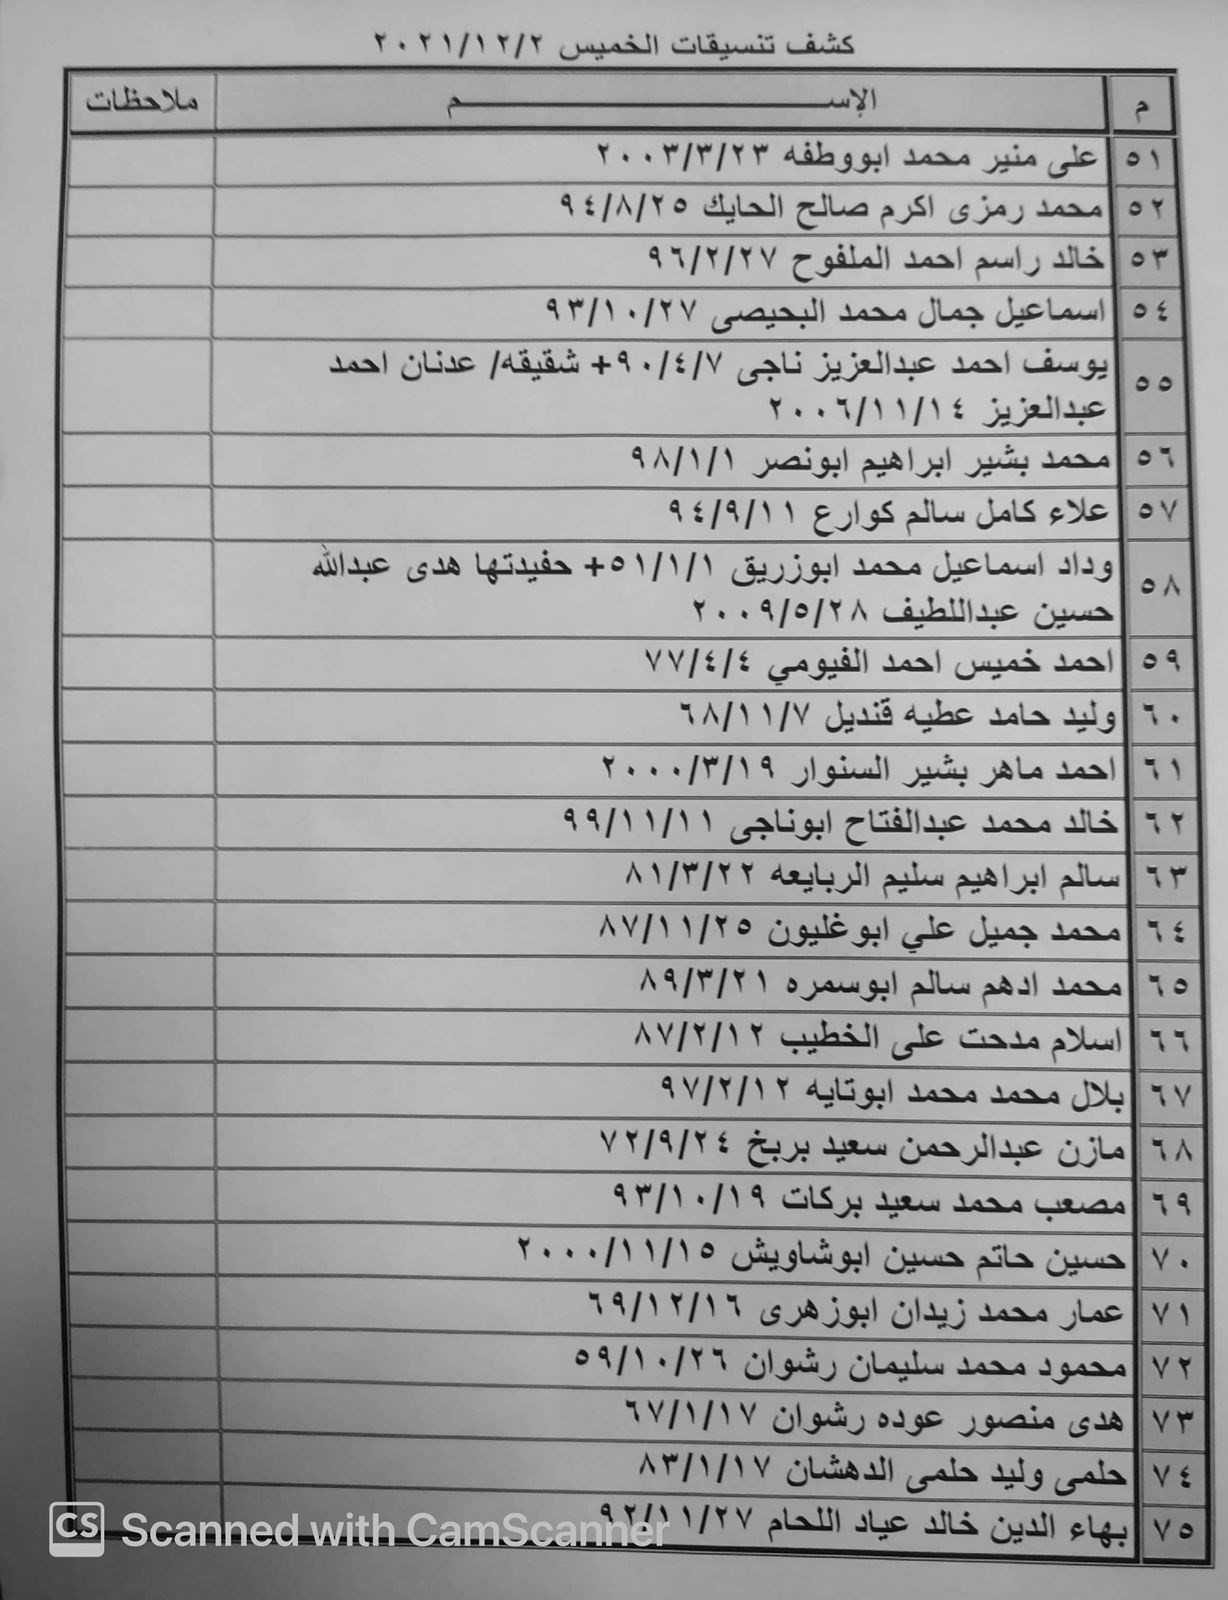 كشف تنسيقات الخميس ٢٠٢١/١٢/٢
م الإســـــــــــــــــم ملاحظات
٥١ على منير محمد ابووطفه ٢٠٠٣/٣/٢٣
٥٢ محمد رمزى اكرم صالح الحايك ٩٤/٨/٢٥
٥٣ خالد راسم احمد الملفوح ٩٦/٢/٢٧
٥٤ اسماعيل جمال محمد البحيصى ٩٣/١٠/٢٧
٥٥ يوسف احمد عبدالعزيز ناجى ٩٠/٤/٧+ شقيقه/ عدنان احمد
عبدالعزيز ٢٠٠٦/١١/١٤
٥٦ محمد بشير ابراهيم ابونصر ٩٨/١/١
٥٧ علاء كامل سالم كوارع ٩٤/٩/١١
٥٨ وداد اسماعيل محمد ابوزريق ٥١/١/١+ حفيدتها هدى عبدالله
حسين عبداللطيف ٢٠٠٩/٥/٢٨
٥٩ احمد خميس احمد الفيومي ٧٧/٤/٤
٦٠ وليد حامد عطيه قنديل ٦٨/١١/٧
٦١ احمد ماهر بشير السنوار ٢٠٠٠/٣/١٩
٦٢ خالد محمد عبدالفتاح ابوناجى ٩٩/١١/١١
٦٣ سالم ابراهيم سليم الربايعه ٨١/٣/٢٢
٦٤ محمد جميل علي ابوغليون ٨٧/١١/٢٥
٦٥ محمد ادهم سالم ابوسمره ٨٩/٣/٢١
٦٦ اسلام مدحت على الخطيب ٨٧/٢/١٢
٦٧ بلال محمد محمد ابوتايه ٩٧/٢/١٢
٦٨ مازن عبدالرحمن سعيد بربخ ٧٢/٩/٢٤
٦٩ مصعب محمد سعيد بركات ٩٣/١٠/١٩
٧٠ حسين حاتم حسين ابوشاويش ٢٠٠٠/١١/١٥
٧١ عمار محمد زيدان ابوزهرى ٦٩/١٢/١٦
٧٢ محمود محمد سليمان رشوان ٥٩/١٠/٢٦
٧٣ هدى منصور عوده رشوان ٦٧/١/١٧
٧٤ حلمى وليد حلمى الدهشان ٨٣/١/١٧
٧٥ بهاء الدين خالد عياد اللحام ٩٢/١١/٢٧
CS Scanned with CamScanner